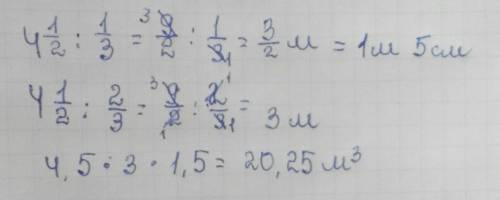 4 1/2 : 1/3 = 9/2 3 : 1/9 1 = 3/2 м = 1м 5см
4 1/2 : 2/3 = 9/2 3 1 : 2/9 1 1 = 3м
4,5 · 3 · 1,5 = 20,25 м³